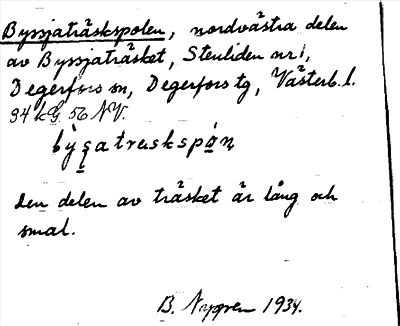 Byssjaträskspolen, nordvästra delen
av Byssjaträsket, Stenliden nr 1,
Degerfors sn, Degerfors tg, Västerb. l.
34 kG 56 NV.
bỳṣatraskspọ́ṇ
den delen av träsket är lång och
smal.
B. Nygren 1934.